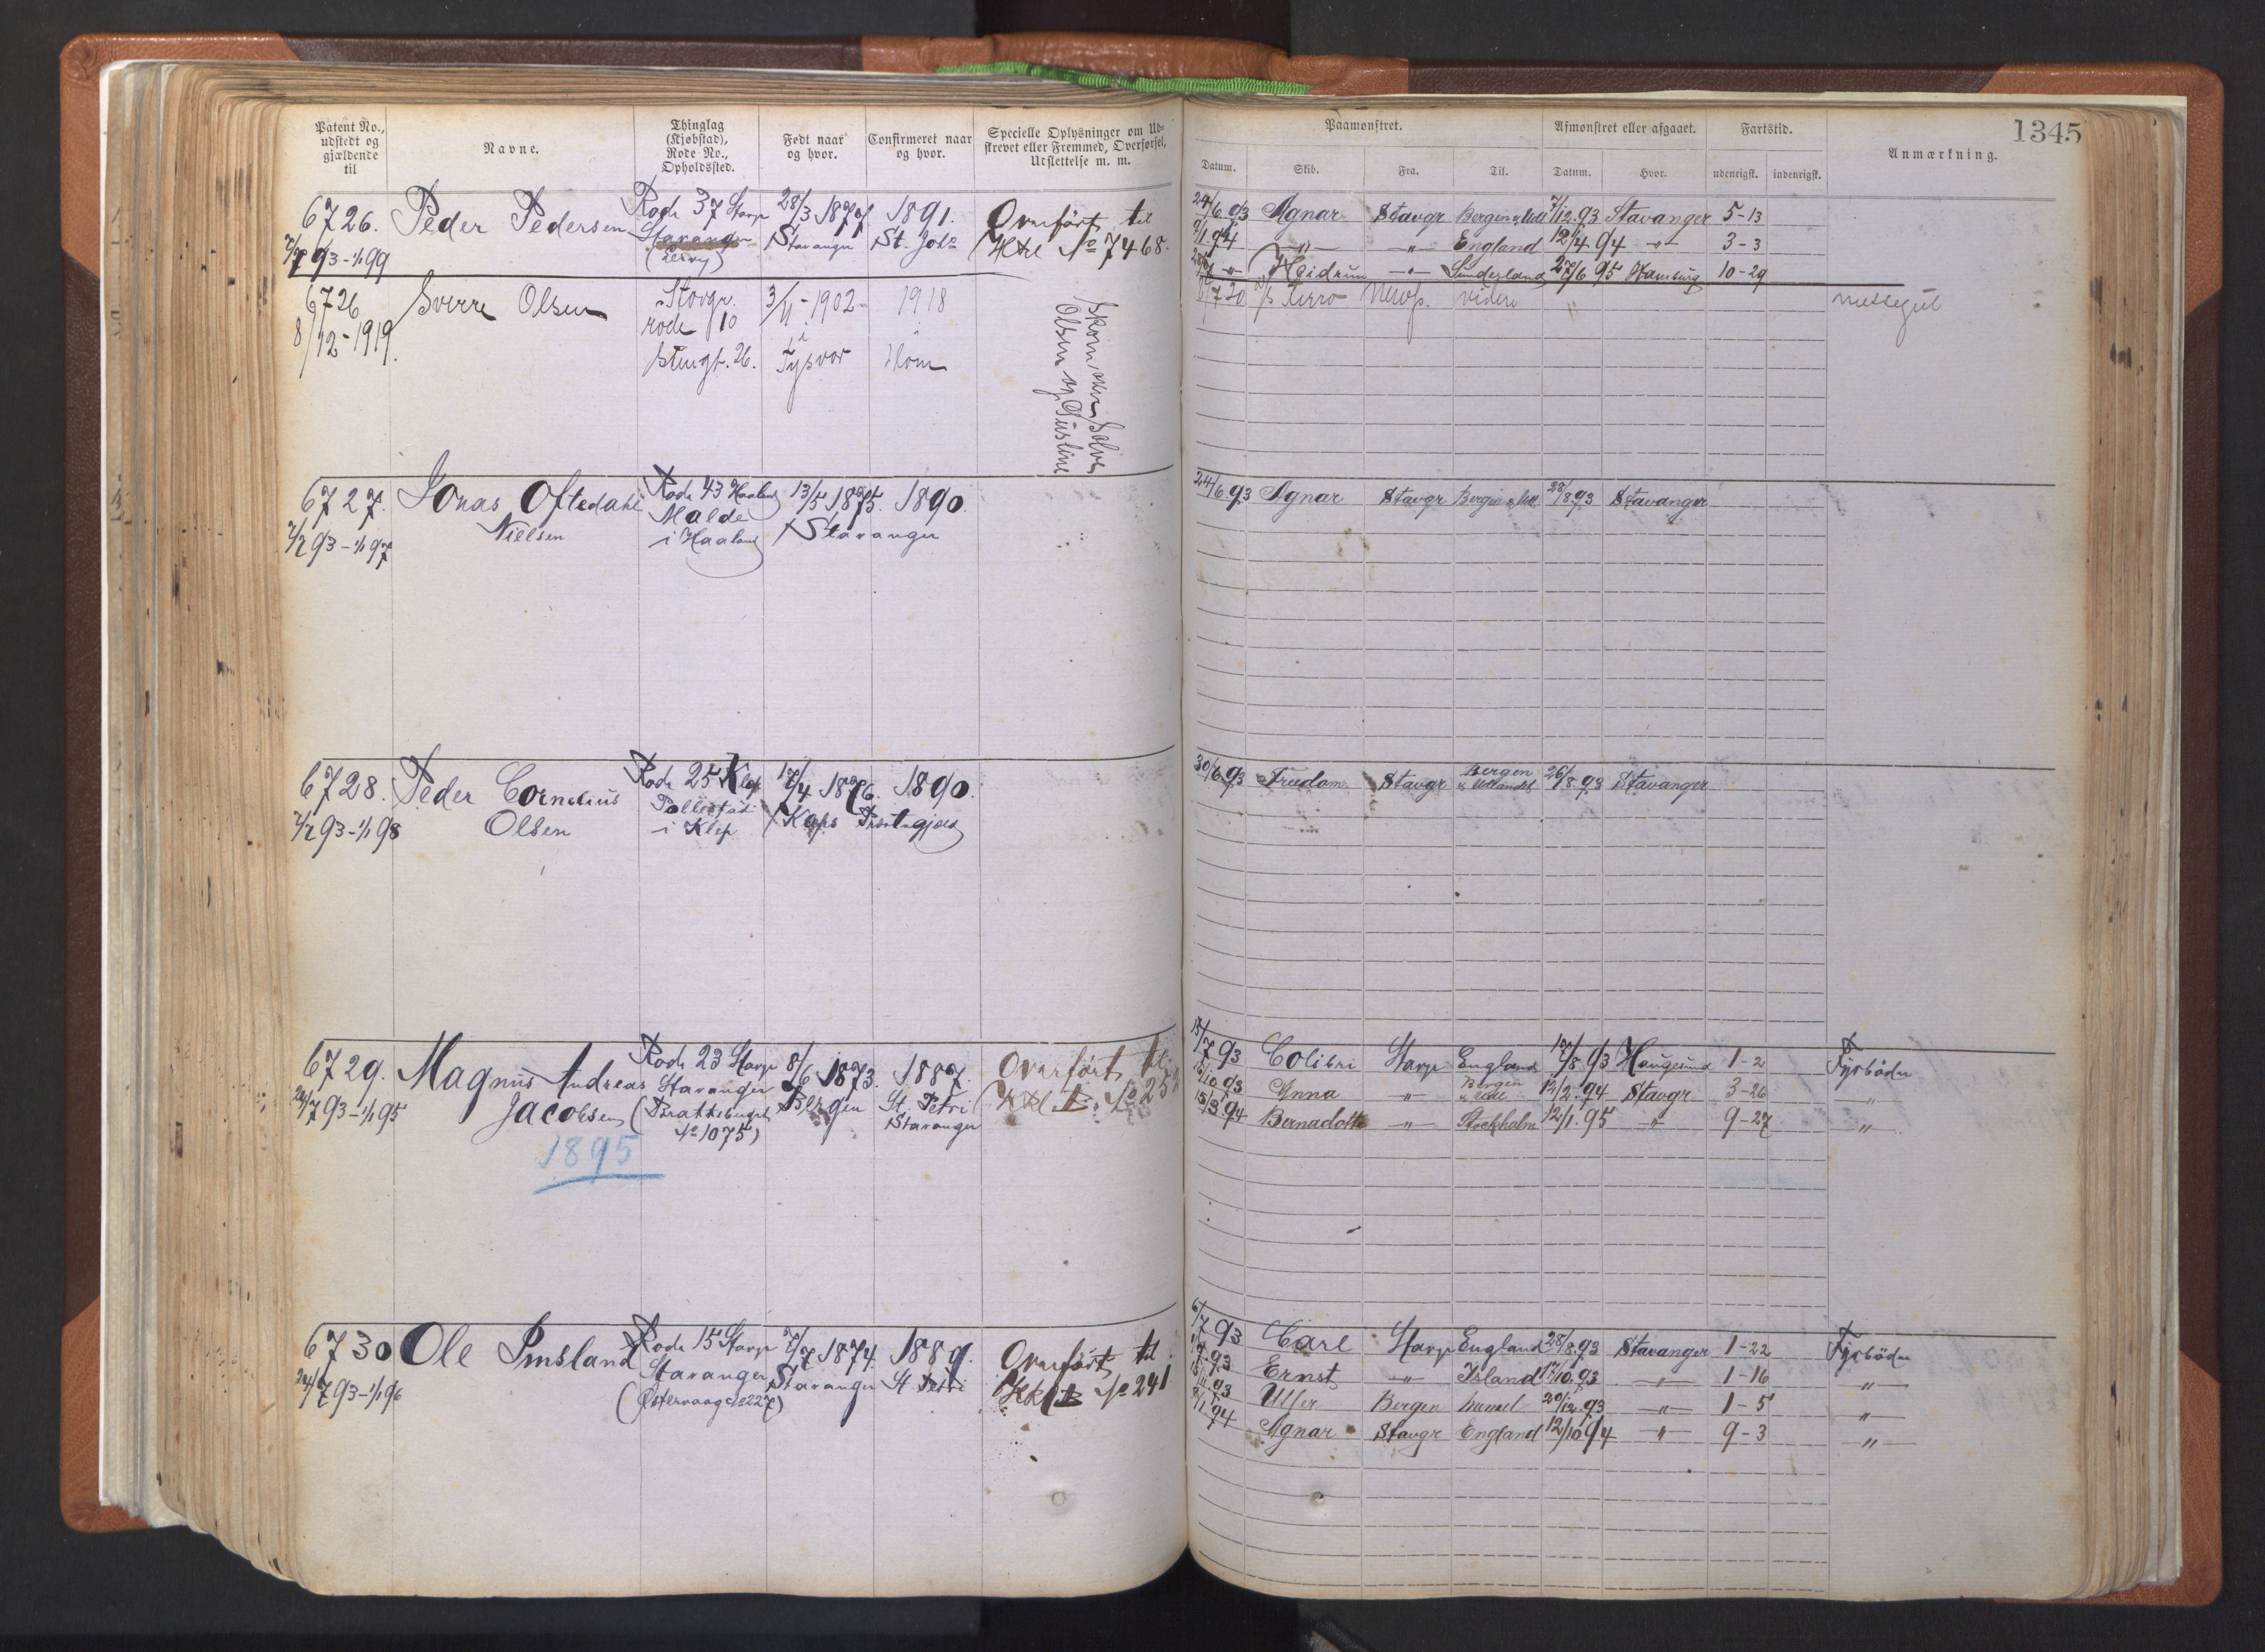 1345
Patent No., udstedt og gjældende til
Navne.
Thinglag (Kjøbstad), Rode No., Opholdssted.
Født naar og hvor.
Confirmeret naar og hvor.
Specielle Oplysninger om Udskrevet eller Fremmed, Overførsel, Udslettelse m. m.
Paamønstret.
Afmønstret eller afgaaet.
Fartstid.
Anmærkning.
Datum. Skib. Fra. Til. Datum. Hvor. udenrigsk. indenrigsk.
6726. Peder Pedersen Rode 37 Stavgr 28/3 1877 1891. Overført til
93-1/1 99 Stavanger Stavanger St. Joh= No 7468.
24/6 93 Agnar Stavgr Bergen 7/12 93 Stavanger 5-13
2/1 94 " " England 12/4 94 " 3-3
Heidrun " Sunderland 27/6 95 Hamburg 10-29
6726 Sverre Olsen Stavgr. 3/11-1902 1918
8/12-1919. rode 10 i i
26. Tysvær
Olsen og
videre
6727. Jonas Oftedahl Rode 43 Haaland 13/5 1875. 1890.
93-1/1 97 Nielsen Malde Stavanger
i Haaland
24/6 93 Agnar Stavgr Bergen 28/8 93 Stavanger
6728. Peder Cornelius Rode 25 Klep 17/4 1876. 1890.
93-1/1 98 Olsen i Klep
30/6 93 Freedom Stavgr Bergen & Utlandet 26/8 93 Stavanger
6729. Magnus Andreas Rode 23 Stavgr 8/6 1873. 1887. Overført til
24/7 93-1/1 95 Jacobsen Stavanger Bergen St. Petri
No 1075) Stavanger
1895
15/7 93 Colibri Stavgr England 17/8 93 Haugesund 1-2 Fyrbøder
93 Anna " Bergen 12/2 94 Stavgr 3-26 "
15/3 94 Bernadotte " Stockholm 12/1 95 " 9-27 "
6730 Ole Imsland Rode 15 Stavgr 7/7 1874. 1889. Overført til
24/7 93-1/1 96 Stavanger Stavanger St. Petri No 241
(Østervaag No 227)
6/7 93 Carl Stavgr England 28/8 93 Stavanger 1-22 Fyrbøder
93 Ernst " Island 17/10 93 " 1-16 "
93 Ulfer Bergen 20/12 93 " 1-5 "
2/1 94 Agnar Stavgr England 12/10 94 " 9-3 "